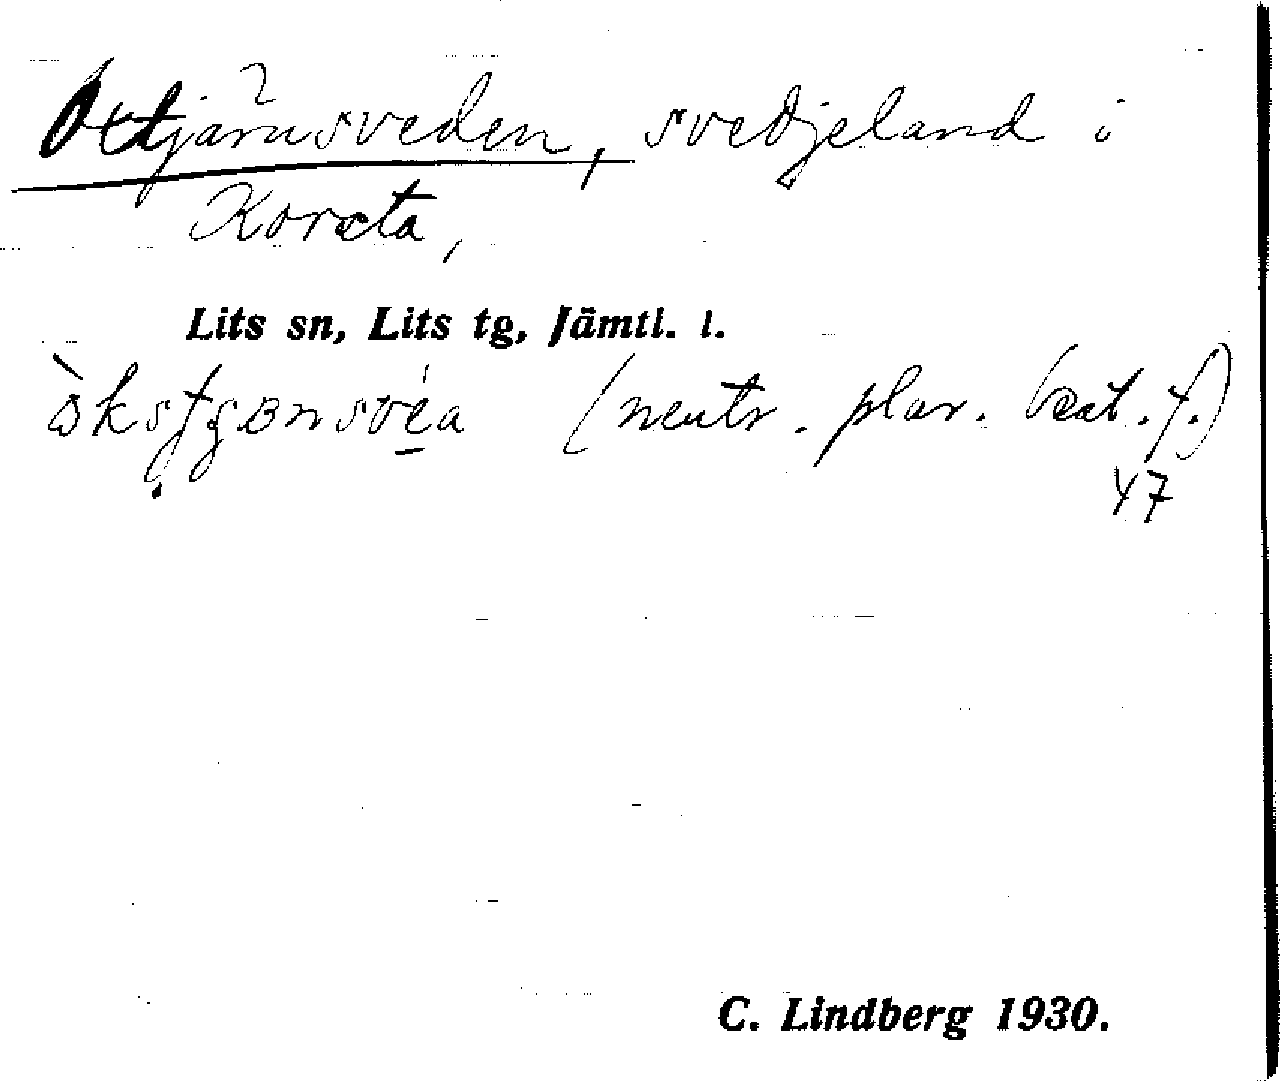 Oxtjärnsveden, svedjeland i
Korsta,
Lits sn, Lits tg, Jämtl. l.
(neutr. plur. best. f.)
47
C. Lindberg 1930.